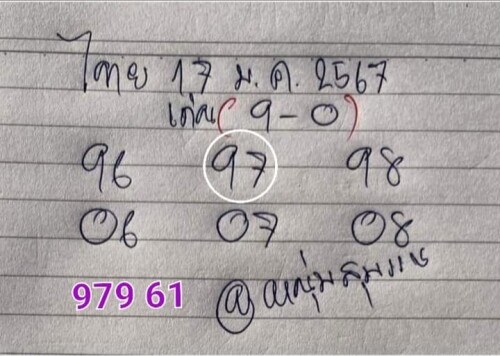 ไทย 17 ม.ค. 2567
เด่น (9-0)
96 97 98
06 07 08
979 61
@ หนุ่มสุ่มรวย